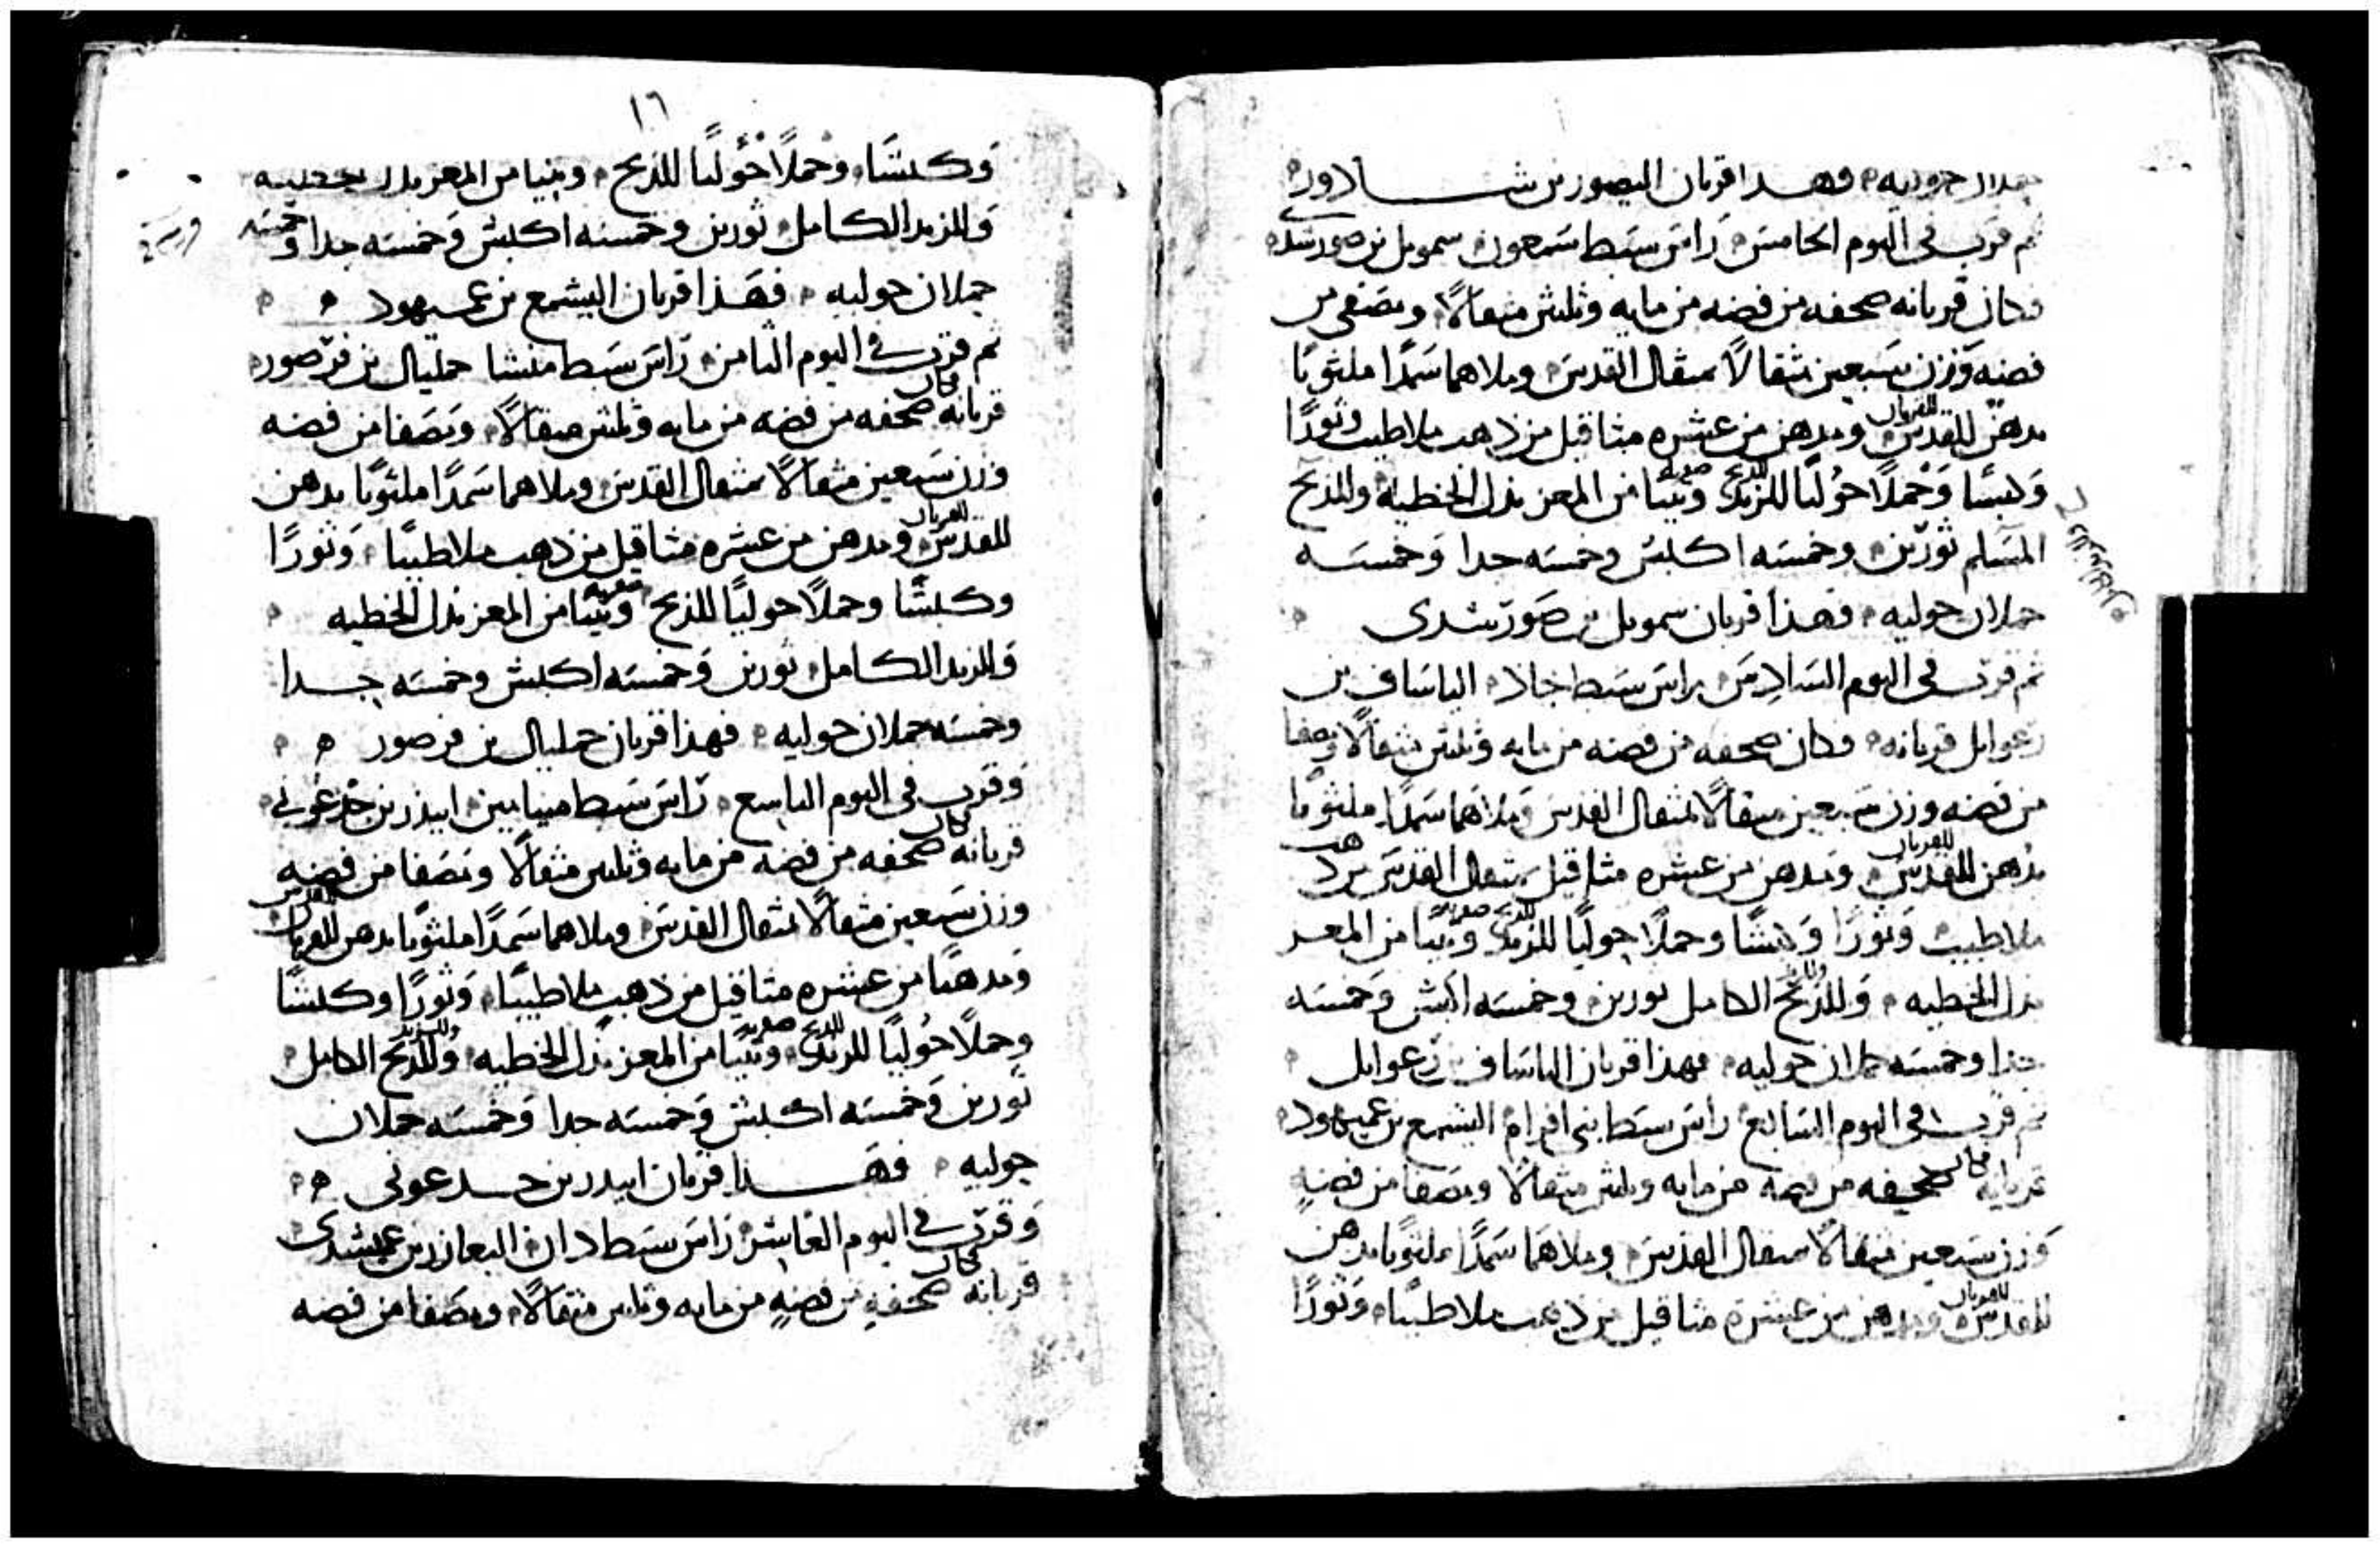 حملان حوليه فهذا قربان اليصور بن شاداور
ثم قرب في اليوم الخامس راس سبط سمعون سمويل بن صورشدى
فكان قربانه صحفه من فضه من مايه وثلثين مثقالًا ومصفى من
فضه وزن سبعين مثقالًا بمثقال القدس وملاهما سمدًا ملثوتا
بدهن للقدس للقربان ومدهن من عشره مثاقيل من ذهب ملا طيب وثورًا
وكبشا وحملًا حوليًا للمزبد للذبح وتيسا من المعز بدل الخطيه وللذبح
المسلم ثورين وخمسه اكبش وخمسه جدا وخمسه
حملان حوليه فهذا قربان سمويل بن صورشدى
ثم قرب في اليوم السادس راس سبط جاذ الياساف بن
رعوايل قربانه فكان صحفه من فضه من مايه وثلثين مثقالًا ومصفا
من فضه وزن سبعين مثقالًا بمثقال القدس وملاهما سمدًا ملثوتا
بدهن للقدس للقربان ومدهن من عشره مثاقيل بمثقال القدس من ذهب
ملا طيب وثورًا وكبشًا وحملًا حوليًا للمزبد للذبح وتيسا من المعز
بدل الخطيه وللذبح الكامل ثورين وخمسه اكبش وخمسه
جدا وخمسه حملان حوليه فهذا قربان الياساف بن رعوايل
ثم قرب في اليوم السابع راس سبط بني افرام اليشمع بن عميهود
قربانه فكان صحيفه من فضه من مايه وثلثين مثقالًا ومصفا من فضه
وزن سبعين مثقالًا بمثقال القدس وملاهما سمدًا ملثوتا بدهن
للقدس للقربان ومدهن من عشره مثاقيل من ذهب ملا طيبًا وثورًا
١٦
وكبشًا وحملًا حوليًا للذبح وتيسا من المعز بدل الخطيه
وللمزبد الكامل ثورين وخمسه اكبش وخمسه جدا وخمسه
حملان حوليه فهذا قربان اليشمع بن عميهود
ثم قرب في اليوم الثامن راس سبط منشا حمليال بن فرصور
قربانه فكان صحفه من فضه من مايه وثلثين مثقالًا ومصفا من فضه
وزن سبعين مثقالًا بمثقال القدس وملاهما سمدًا ملثوتا بدهن
للقدس للقربان ومدهن من عشره مثاقيل من ذهب ملا طيبًا وثورًا
وكبشًا وحملًا حوليًا للذبح وتيسا من المعز بدل الخطيه
وللمزبد الكامل ثورين وخمسه اكبش وخمسه جدا
وخمسه حملان حوليه فهذا قربان حمليال بن فرصور
وقرب في اليوم التاسع راس سبط منيامين ابيدر بن جدعوني
قربانه فكان صحفه من فضه من مايه وثلثين مثقالًا ومصفا من فضه
وزن سبعين مثقالًا بمثقال القدس وملاهما سمدًا ملثوتا بدهن للقربان للقدس
ومدهنا من عشره مثاقيل من ذهب ملا طيبًا وثورًا وكبشًا
وحملًا حوليًا للمزبد للذبح وتيسا من المعز بدل الخطيه وللذبح الكامل
ثورين وخمسه اكبش وخمسه جدا وخمسه حملان
حوليه فهذا قربان ابيدر بن جدعوني
وقرب في اليوم العاشر راس سبط دان اليعازر بن عميشدى
قربانه فكان صحفه من فضه من مايه وثلثين مثقالًا ومصفا من فضه